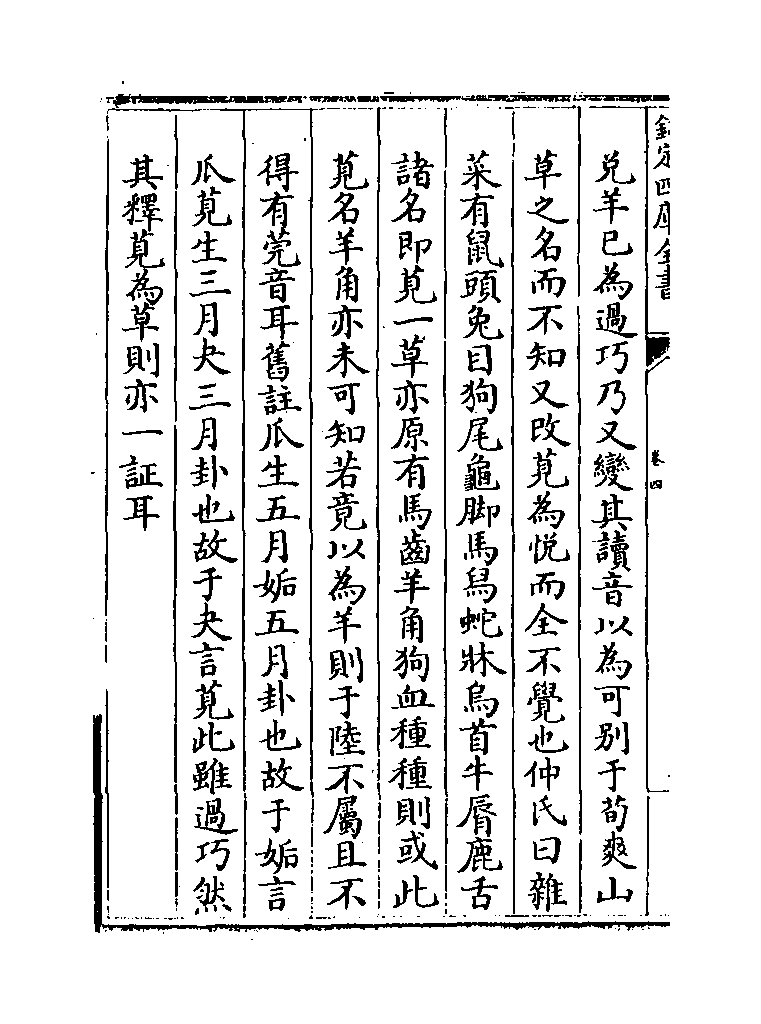 欽定四庫全書
卷四
兑羊已為過巧乃又變其讀音以為可别于荀爽山
草之名而不知又改莧為悦而全不覺也仲氏曰雜
菜有鼠頭兔目狗尾龜脚馬舃蛇牀烏首牛脣鹿舌
諸名即莧一草亦原有馬齒羊角狗血種種則或此
莧名羊角亦未可知若竟以為羊則于陸不屬且不
得有莞音耳舊註瓜生五月姤五月卦也故于姤言
瓜莧生三月夬三月卦也故于夬言莧此雖過巧然
其釋莧為草則亦一証耳